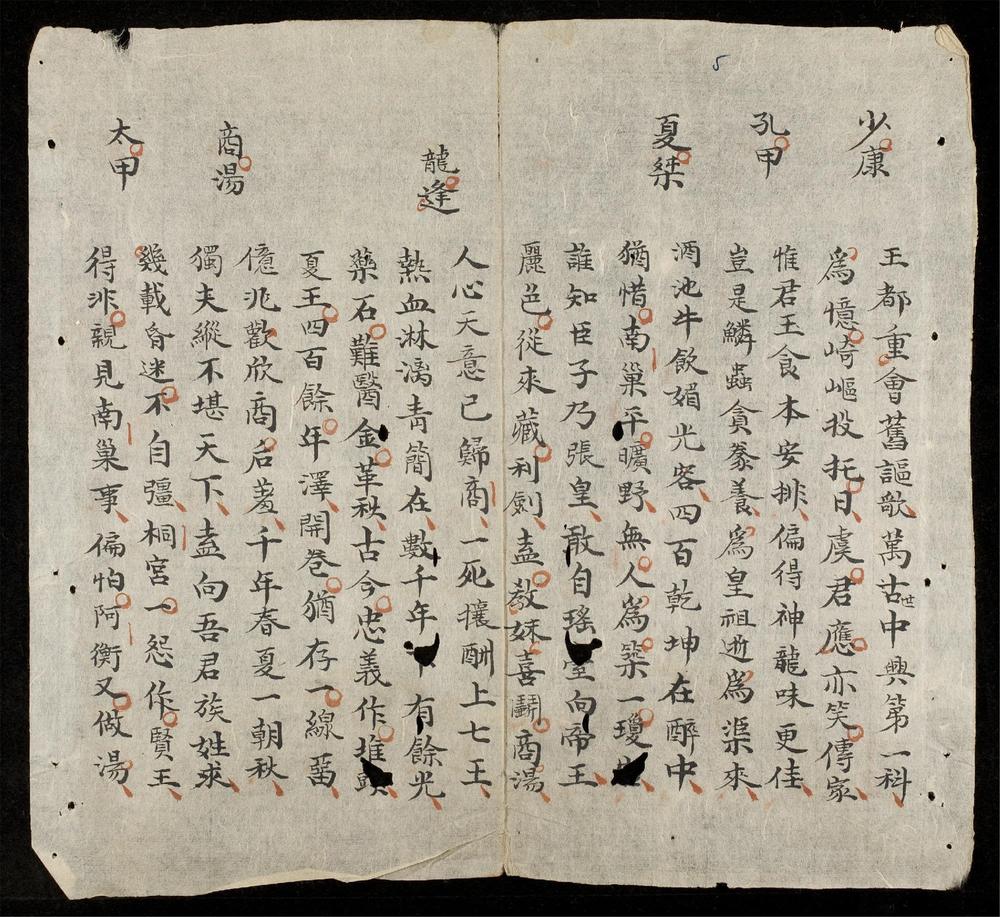 5
少康
孔甲
夏桀
龍逄
商湯
太甲
王都重會舊謳歌萬古世中興第一科
爲憶崎嶇投托日虞君應亦笑傳家
惟君王食本安排偏得神龍味更佳
豈是鱗蟲貪豢養爲皇祖逝爲渠來
酒池牛飲媚光容四百乾坤在醉中
猶惜南巢平曠野無人爲築一瓊
誰知臣子乃張皇敢自瑤 向帝王
麗色從來藏利劍盍教妹喜鬪商湯
人心天意已歸商一死攘酬上七王
熱血淋漓青簡在數千年 有餘光
藥石難醫金革秋古今忠義作堆
夏王四百餘年澤開卷猶存一線畱
億兆歡欣商后蓍千年春夏一朝秋
獨夫縱不堪天下盍向吾君族姓求
幾載昏迷不自彊桐宮一怨作賢王
得非親見南巢事偏怕阿衡又做湯